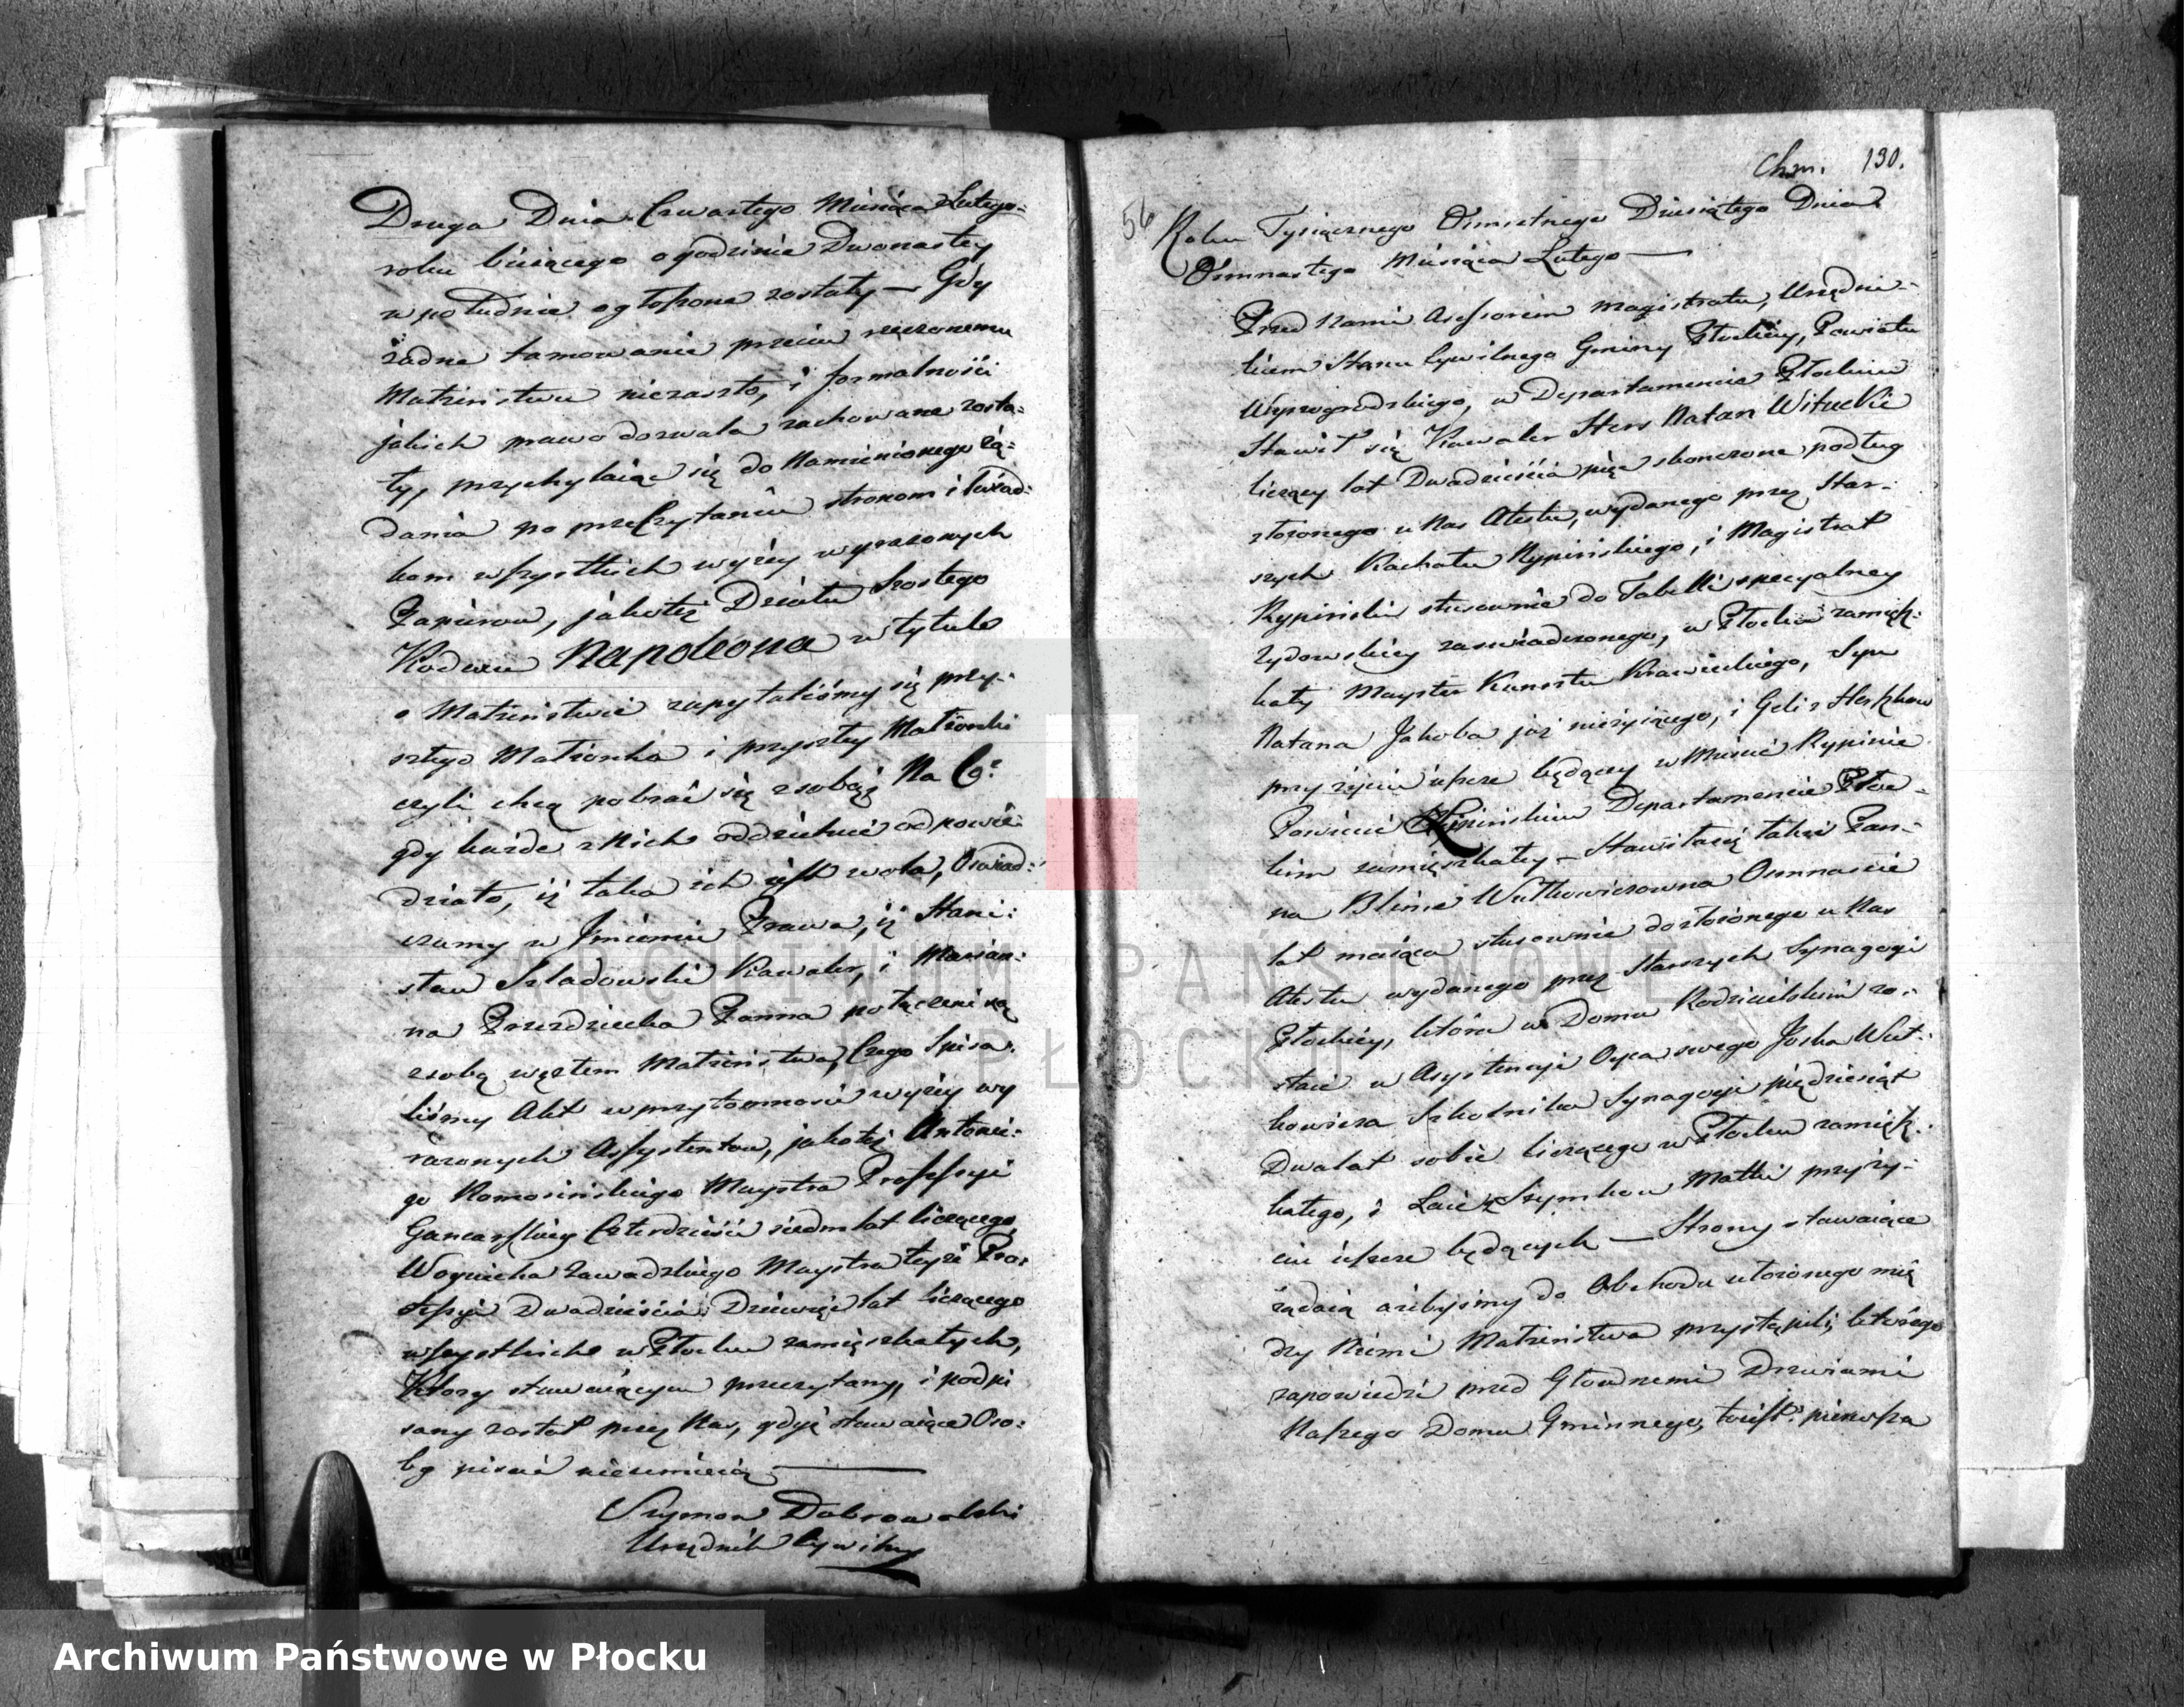 Druga Dnia Czwartego Miesiąca Lutego
roku bieżącego o godzinie Dwonastey
w południe ogłoszone zostały — Gdy
żadne tamowanie przeciw rzeczonemu
Małzeństwu niezaszło, i formalności
jakich prawo dozwala zachowane zosta-
ły, przychylaiąc się do Namienionego żą-
dania po przeczytaniu stronom i świad-
kom wszystkich wyżey wyrazonych
Papierow, jakoteż Działu szostego
Kodexu Napoleona w tytule
o Małzeństwie zapytaliśmy się przy-
szłego Małzonka i przyszłey Małzonki
czyli chcą pobrać się z sobą? Na Co
gdy każde z Nich oddzielnie odpowie-
działo, iż taka ich jest wola, Oswiad-
czamy w Jmieniu Prawa, iż Stani-
sław Szladowski Kawaler, i Marian-
na Przezdziecka Panna połączeni są
z sobą węzłem Małzeństwa, Czego Spisa-
liśmy Akt w przytomności wyżey wy
rażonych Assystentow, jakoteż Antonie-
go Komosińskiego Maystra Professyi
Gancarskiey Czterdzieści siedm lat liczącego,
Woyciecha Zawadzkiego Maystra teyże Pro-
fessyi Dwadzieścia Dziewięć lat liczącego
wszystkich w Płocku zamięszkałych,
Ktory stawaiącym przeczytany, i podpi
sany został przez Nas, gdyż stawaiące Oso-
by pisać nieumieią —
Szymon Dobrowolski
Urzędnik Cywilny
Chm. 130.
56
Roku Tysiącznego Osmsetnego Dziesiątego Dnia
Osmnastego Miesiąca Lutego —
Przed Nami Assessorem Magistratu, Urzędni-
kiem Stanu Cywilnego Gminy Płockiey, Powiatu
Wyszogrodzkiego, w Departamencie Płockim
Stawił się Kawaler Hers Natan Wituckie
liczący lat Dwadzieścia pięć skonczone podług
złozonego u Nas Atestu, wydanego przez Star-
szych Kachału Rypińskiego, i Magistrat
Rypiński stosownie do Tabelli specyalney
Zydowskiey zaswiadczonego, w Płocku zamięsz-
kały Mayster Kunsztu Krawieckiego, Syn
Natana Jakoba już nieżyiącego, i Geli z Herszkow
przy życiu jeszcze będącey w Mieście Rypinie
Powiecie Lipińskim Departamencie Płoc-
kim zamięszkałey — Stawiła się także Pan-
na Blima Wutkowiczowna Osmnaście
lat maiąca stosownie do złożonego u Nas
Atestu wydanego przez Starszych Synagogi
Płockiey, ktora w Domu Rodzicielskim zo-
staie w Asystencyi Oyca swego Joska Wut-
kowicza Szkolnika Synagogi pięcdziesiąt
Dwa lat sobie liczącego w Płocku zamięsz-
kałego, i Łaie z Szymkow Matki przy ży-
ciu jeszcze będących — Strony stawaiące
żądaią ażebyśmy do Obchodu ułożonego mię
dzy Niemi Małzeństwa przystąpili, ktorego
zapowiedzi przed Głownemi Drzwiami
Naszego Domu Gminnego, to iest: pierwsza
Archiwum Państwowe w Płocku
ARCHIWUM PAŃSTWOWE
W PŁOCKU